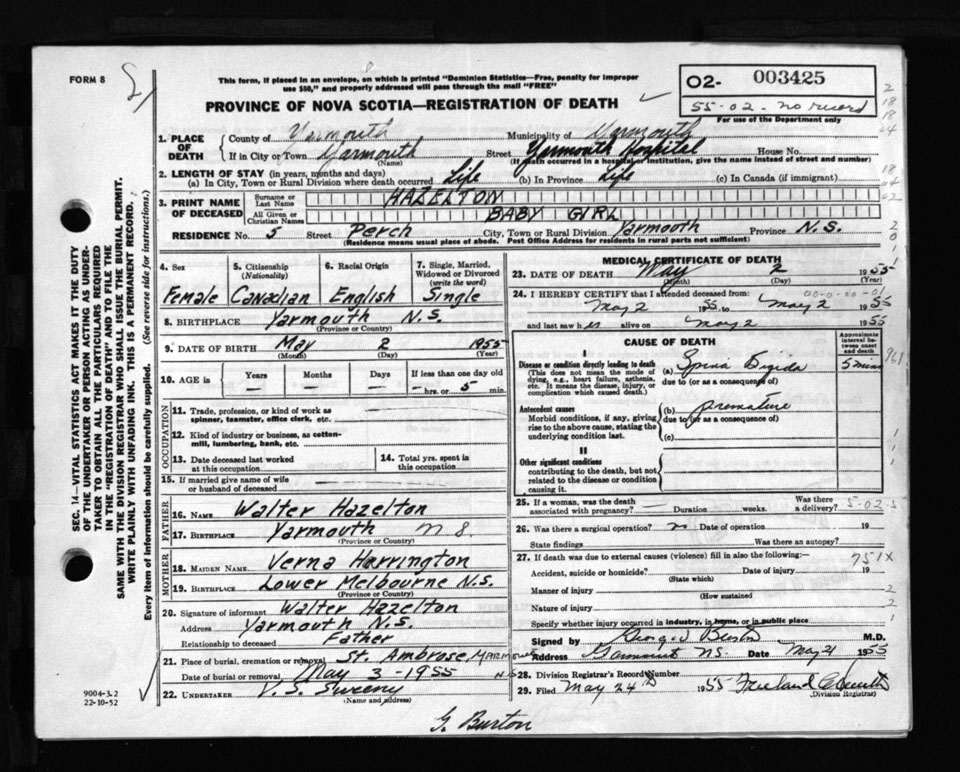 FORM 8
This form, if placed in an envelope, on which is printed "Dominion Statistics—Free, penalty for improper
use $50," and properly addressed will pass through the mail "FREE"
PROVINCE OF NOVA SCOTIA—REGISTRATION OF DEATH
O2- 003425
55-02- no record
For use of the Department only
1. PLACE OF DEATH
County of Yarmouth
Municipality of Yarmouth
If in City or Town Yarmouth
(Name)
Street Yarmouth Hospital House No.
(If death occurred in a hospital or institution, give the name instead of street and number)
2. LENGTH OF STAY (in years, months and days)
(a) In City, Town or Rural Division where death occurred Life (b) In Province Life (c) In Canada (if immigrant)
3. PRINT NAME OF DECEASED
Surname or Last Name HAZELTON
All Given or Christian Names BABY GIRL
RESIDENCE No. 5 Street Perch City, Town or Rural Division Yarmouth Province N.S.
(Residence means usual place of abode. Post Office Address for residents in rural parts not sufficient)
4. Sex
Female
5. Citizenship
(Nationality)
Canadian
6. Racial Origin
English
7. Single, Married, Widowed or Divorced
(write the word)
Single
8. BIRTHPLACE Yarmouth N.S.
(Province or Country)
9. DATE OF BIRTH May 2 1955
(Month) (Day) (Year)
10. AGE in Years Months Days If less than one day old
— — — — hrs. or 5 min.
OCCUPATION
11. Trade, profession, or kind of work as
spinner, teamster, office clerk, etc. —
12. Kind of industry or business, as cotton-
mill, lumbering, bank, etc. —
13. Date deceased last worked
at this occupation
14. Total yrs. spent in
this occupation
15. If married give name of wife
or husband of deceased —
FATHER
16. NAME Walter Hazelton
17. BIRTHPLACE Yarmouth N S.
(Province or Country)
MOTHER
18. MAIDEN NAME Verna Harrington
19. BIRTHPLACE Lower Melbourne N.S.
(Province or Country)
20. Signature of informant Walter Hazelton
Address Yarmouth N.S.
Relationship to deceased Father
21. Place of burial, cremation or removal St. Ambrose, Yarmouth
Date of burial or removal May 3 - 1955 N.S
22. UNDERTAKER V. S. Sweeny
(Name and address)
MEDICAL CERTIFICATE OF DEATH
23. DATE OF DEATH May 2 1955
(Month) (Day) (Year)
24. I HEREBY CERTIFY that I attended deceased from:
May 2 1955 to May 2 1955
and last saw her alive on May 2 1955
CAUSE OF DEATH
Approximate interval between onset and death
I
Disease or condition directly leading to death
(This does not mean the mode of
dying, e.g., heart failure, asthenia,
etc. It means the disease, injury, or
complication which caused death.)
(a) Spina Bifida 5 mins
due to (or as a consequence of)
Antecedent causes
Morbid conditions, if any, giving
rise to the above cause, stating the
underlying condition last.
(b) premature
due to (or as a consequence of)
(c)
II
Other significant conditions
contributing to the death, but not
related to the disease or condition
causing it.
25. If a woman, was the death
associated with pregnancy? — Duration weeks. Was there a delivery?
26. Was there a surgical operation? no Date of operation 19
State findings Was there an autopsy?
27. If death was due to external causes (violence) fill in also the following:—
Accident, suicide or homicide? Date of injury 19
(State which)
Manner of injury
(How sustained
Nature of injury
Specify whether injury occurred in industry, in home, or in public place
751X
Signed by M.D.
Address N.S. Date May 21 1955
28. Division Registrar's Record Number
29. Filed May 24th 1955
(Division Registrar)
G. Burton
9004-3.2
22-10-52
SEC. 14—VITAL STATISTICS ACT MAKES IT THE DUTY
OF THE UNDERTAKER OR PERSON ACTING AS UNDER-
TAKER TO OBTAIN ALL THE PARTICULARS REQUIRED
IN THE "REGISTRATION OF DEATH" AND TO FILE THE
SAME WITH THE DIVISION REGISTRAR WHO SHALL ISSUE THE BURIAL PERMIT.
WRITE PLAINLY WITH UNFADING INK. THIS IS A PERMANENT RECORD.
Every item of information should be carefully supplied. (See reverse side for instructions.)